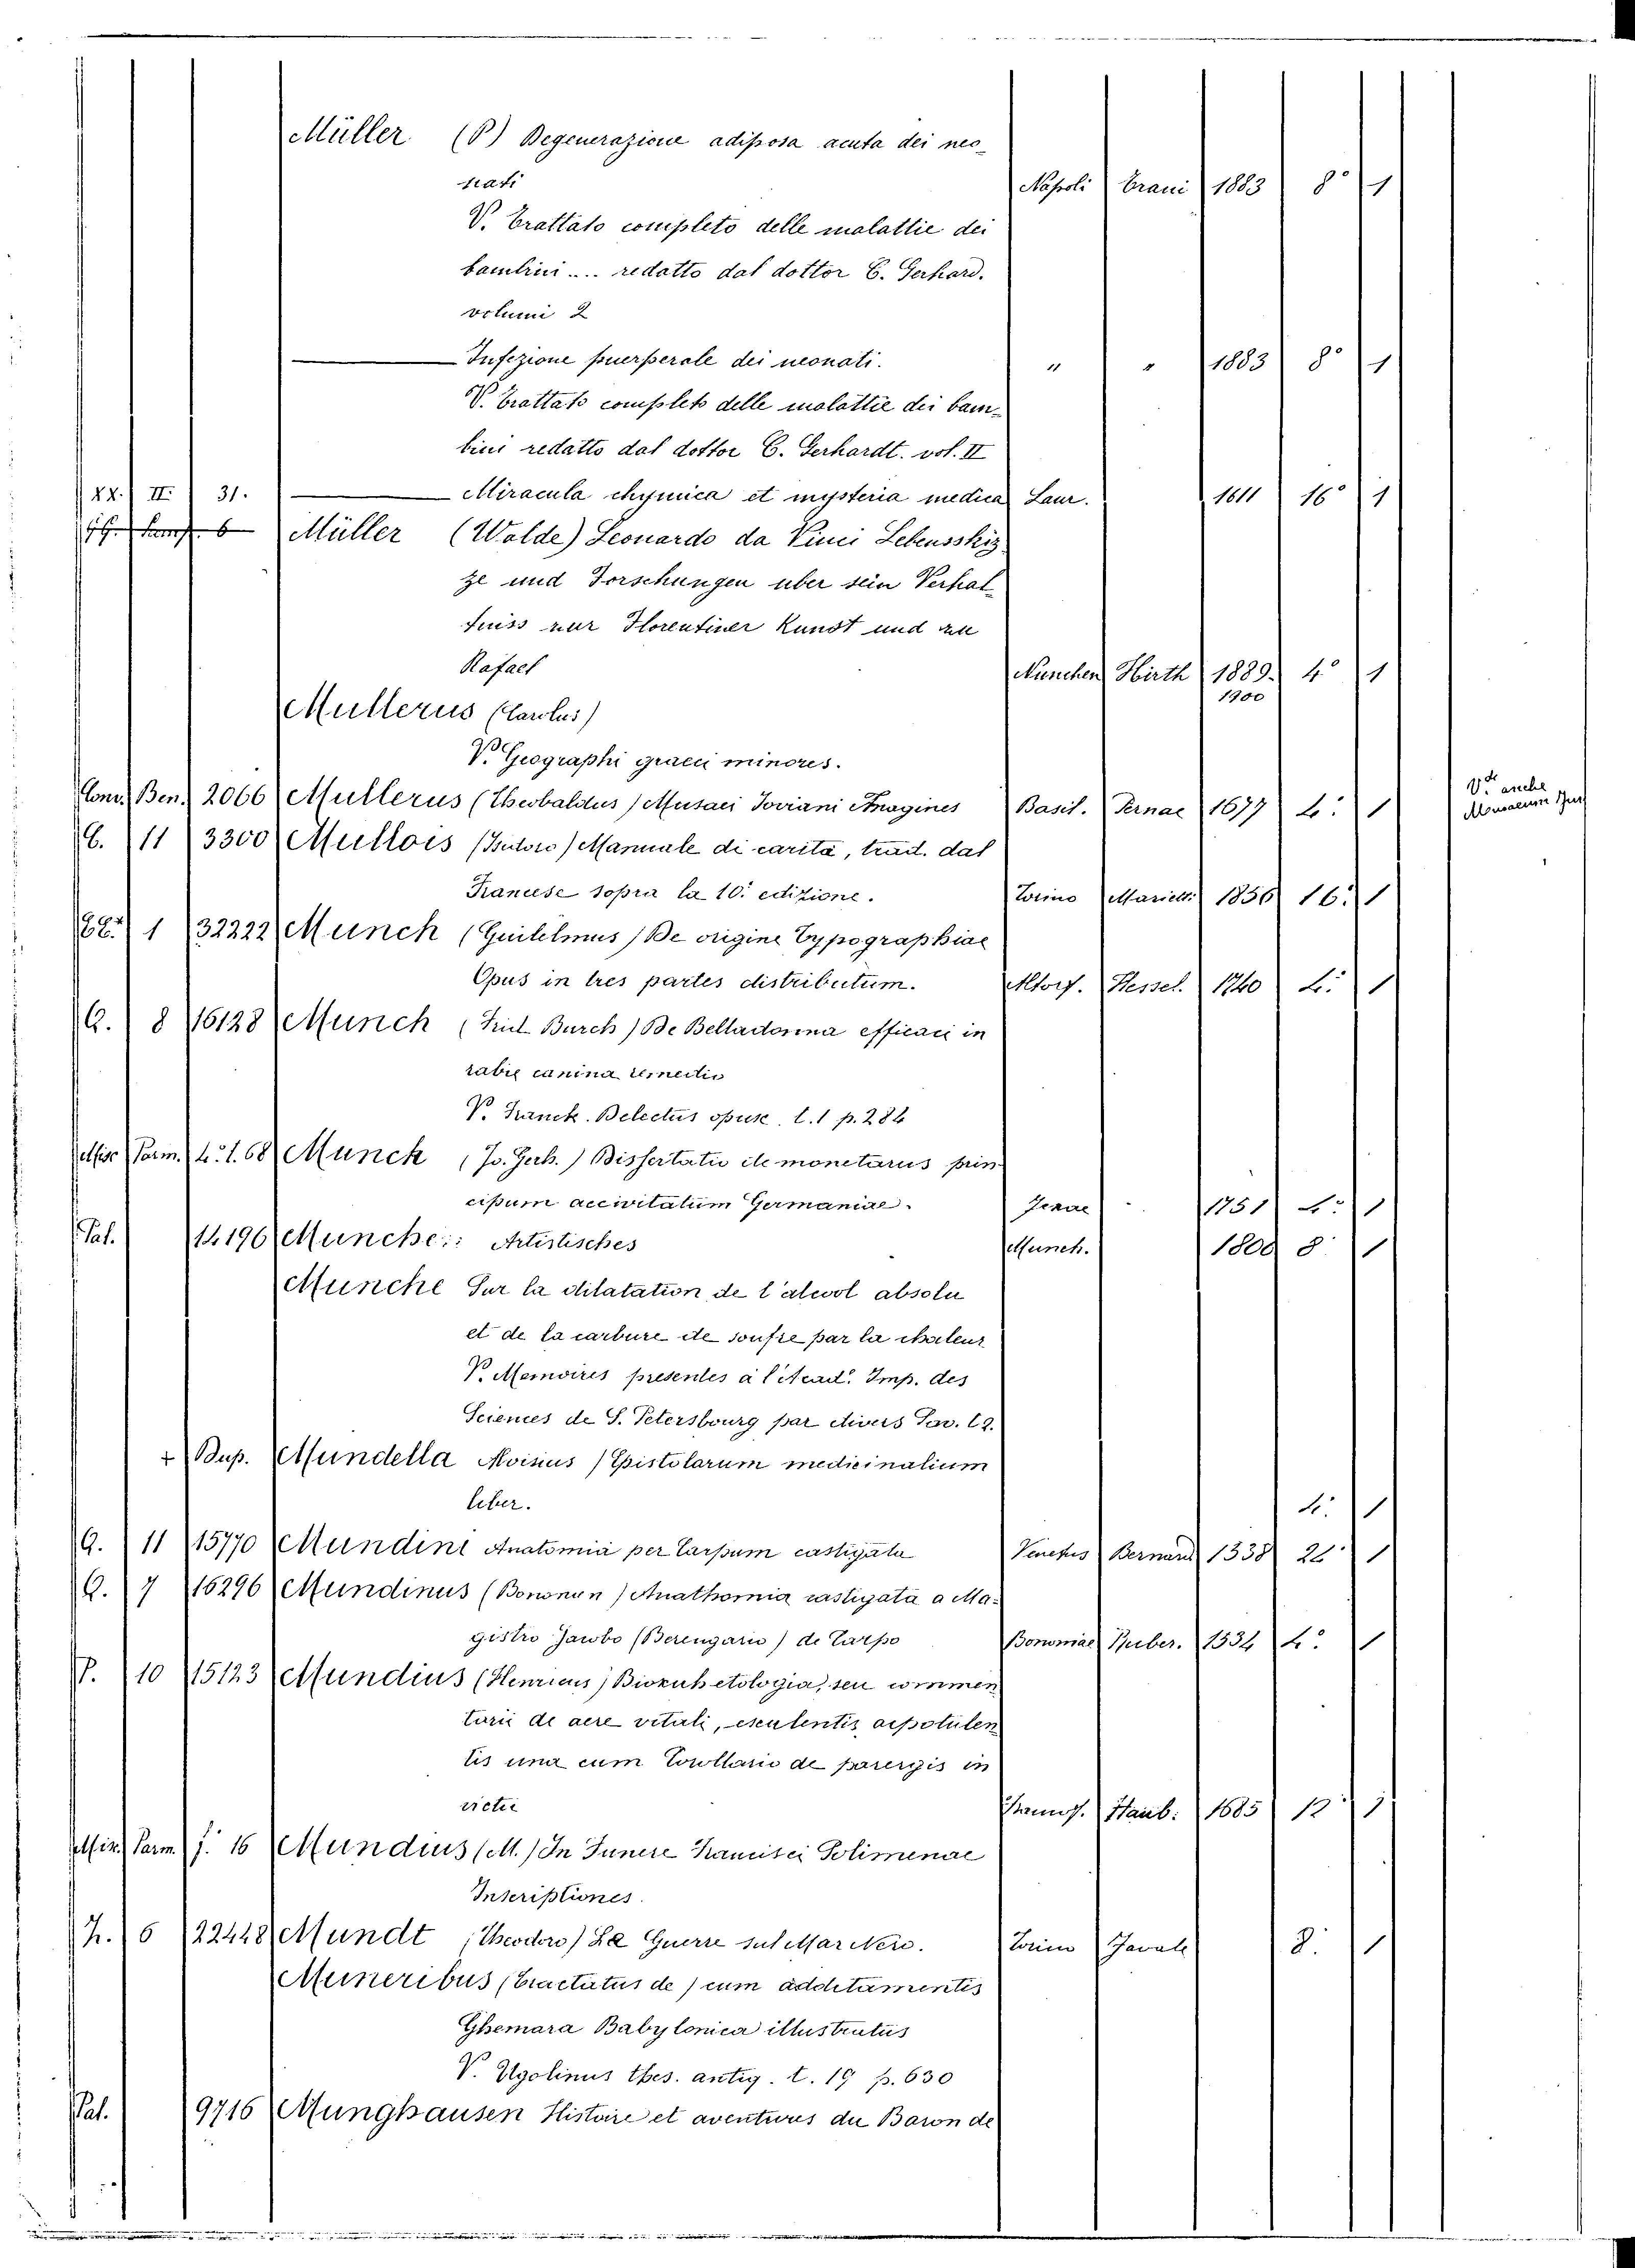 Müller (P) Degenerazione adiposa acuta dei neo-
nati Napoli Trani 1883 8° 1
V. Trattato completo delle malattie dei
bambini.... redatto dal dottor C. Gerhard.
volumi 2
Infezione puerperale dei neonati. " " 1883 8° 1
V. Trattato completo delle malattie dei bam-
bini redatto dal dottor C. Gerhardt. vol. II
XX. II. 31. Miracula chymica et mysteria medica Laur. 1611 16° 1
6 Müller (Walde) Leonardo da Vinci Lebensskiz
ze und Forschungen uber sein Verhal
tniss zur Florentiner Kunst und zu
Rafael Munchen Hirth 1889. 4° 1
1900
Mullerus (Carolus)
V. Geographi graeci minores.
Conv. Ben. 2066 Mullerus (Theobaldus) Musaei Joviani Imagines Basil. Pernae 1677 4: 1
V. anche
Musaeum
C. 11 3300 Mullois (Isidoro) Manuale di carità, trad. dal
Francese sopra la 10: edizione. Torino Marietti 1856 16: 1
1 32222 Munch (Guilelmus) De origine Typographiae
Opus in tres partes distributum. Altorf. Hessel. 1740 4: 1
G. 8 16128 Munch (Burch) De Belladonna efficaci in
rabie canina remedio
V. Franck. Delectus opusc. t. 1 p. 284
Misc. Parm. 4: t. 68 Munck (Jo. Gerh.) Dissertatio de monetariis prin
cipum ac civitatum Germaniae. Jenae 1751 4: 1
Pal. 14196 Munche:: Artistisches Munch. 1800 8: 1
Munche Sur la dilatation de l'alcool absolu
et de la carbure de soufre par la chaleur
V. Memoires presentés à l'Acad. Imp. des
Sciences de S. Petersbourg par divers Sav. t 9.
+ Dup. Mundella Aloisius (Epistolarum medicinalium
liber. 4: 1
G. 11 15770 Mundini Anatomia per Carpum castigata Venetiis Bernard 1538 24 1
G. 7 16296 Mundinus (Bononien) Anathomia castigata a Ma-
gistro Jacobo (Berengario) de Carpo Bononiae Ruber. 1534 4: 1
P. 10 15123 Mundius (Henricus) Biochretologia, seu commen
tarii de aere vitali, esculentis ac potulen
tis una cum Corollario de parergis in
victu Francof. Haub. 1685 12 1
Misc. Parm. f. 16 Mundius (M.) In Funere Francisci Polimenae
Inscriptiones.
Z. 6 22448 Mundt (Theodoro) La Guerre sul Mar Nero. Torino Favale 8: 1
Muneribus (Tractatus de) cum additamentis
Ghemara Babylonica illustratus
V. Ugolinus thes. antiq. t. 19 p. 630
Pal. 9716 Munghausen Histoire et aventures du Baron de